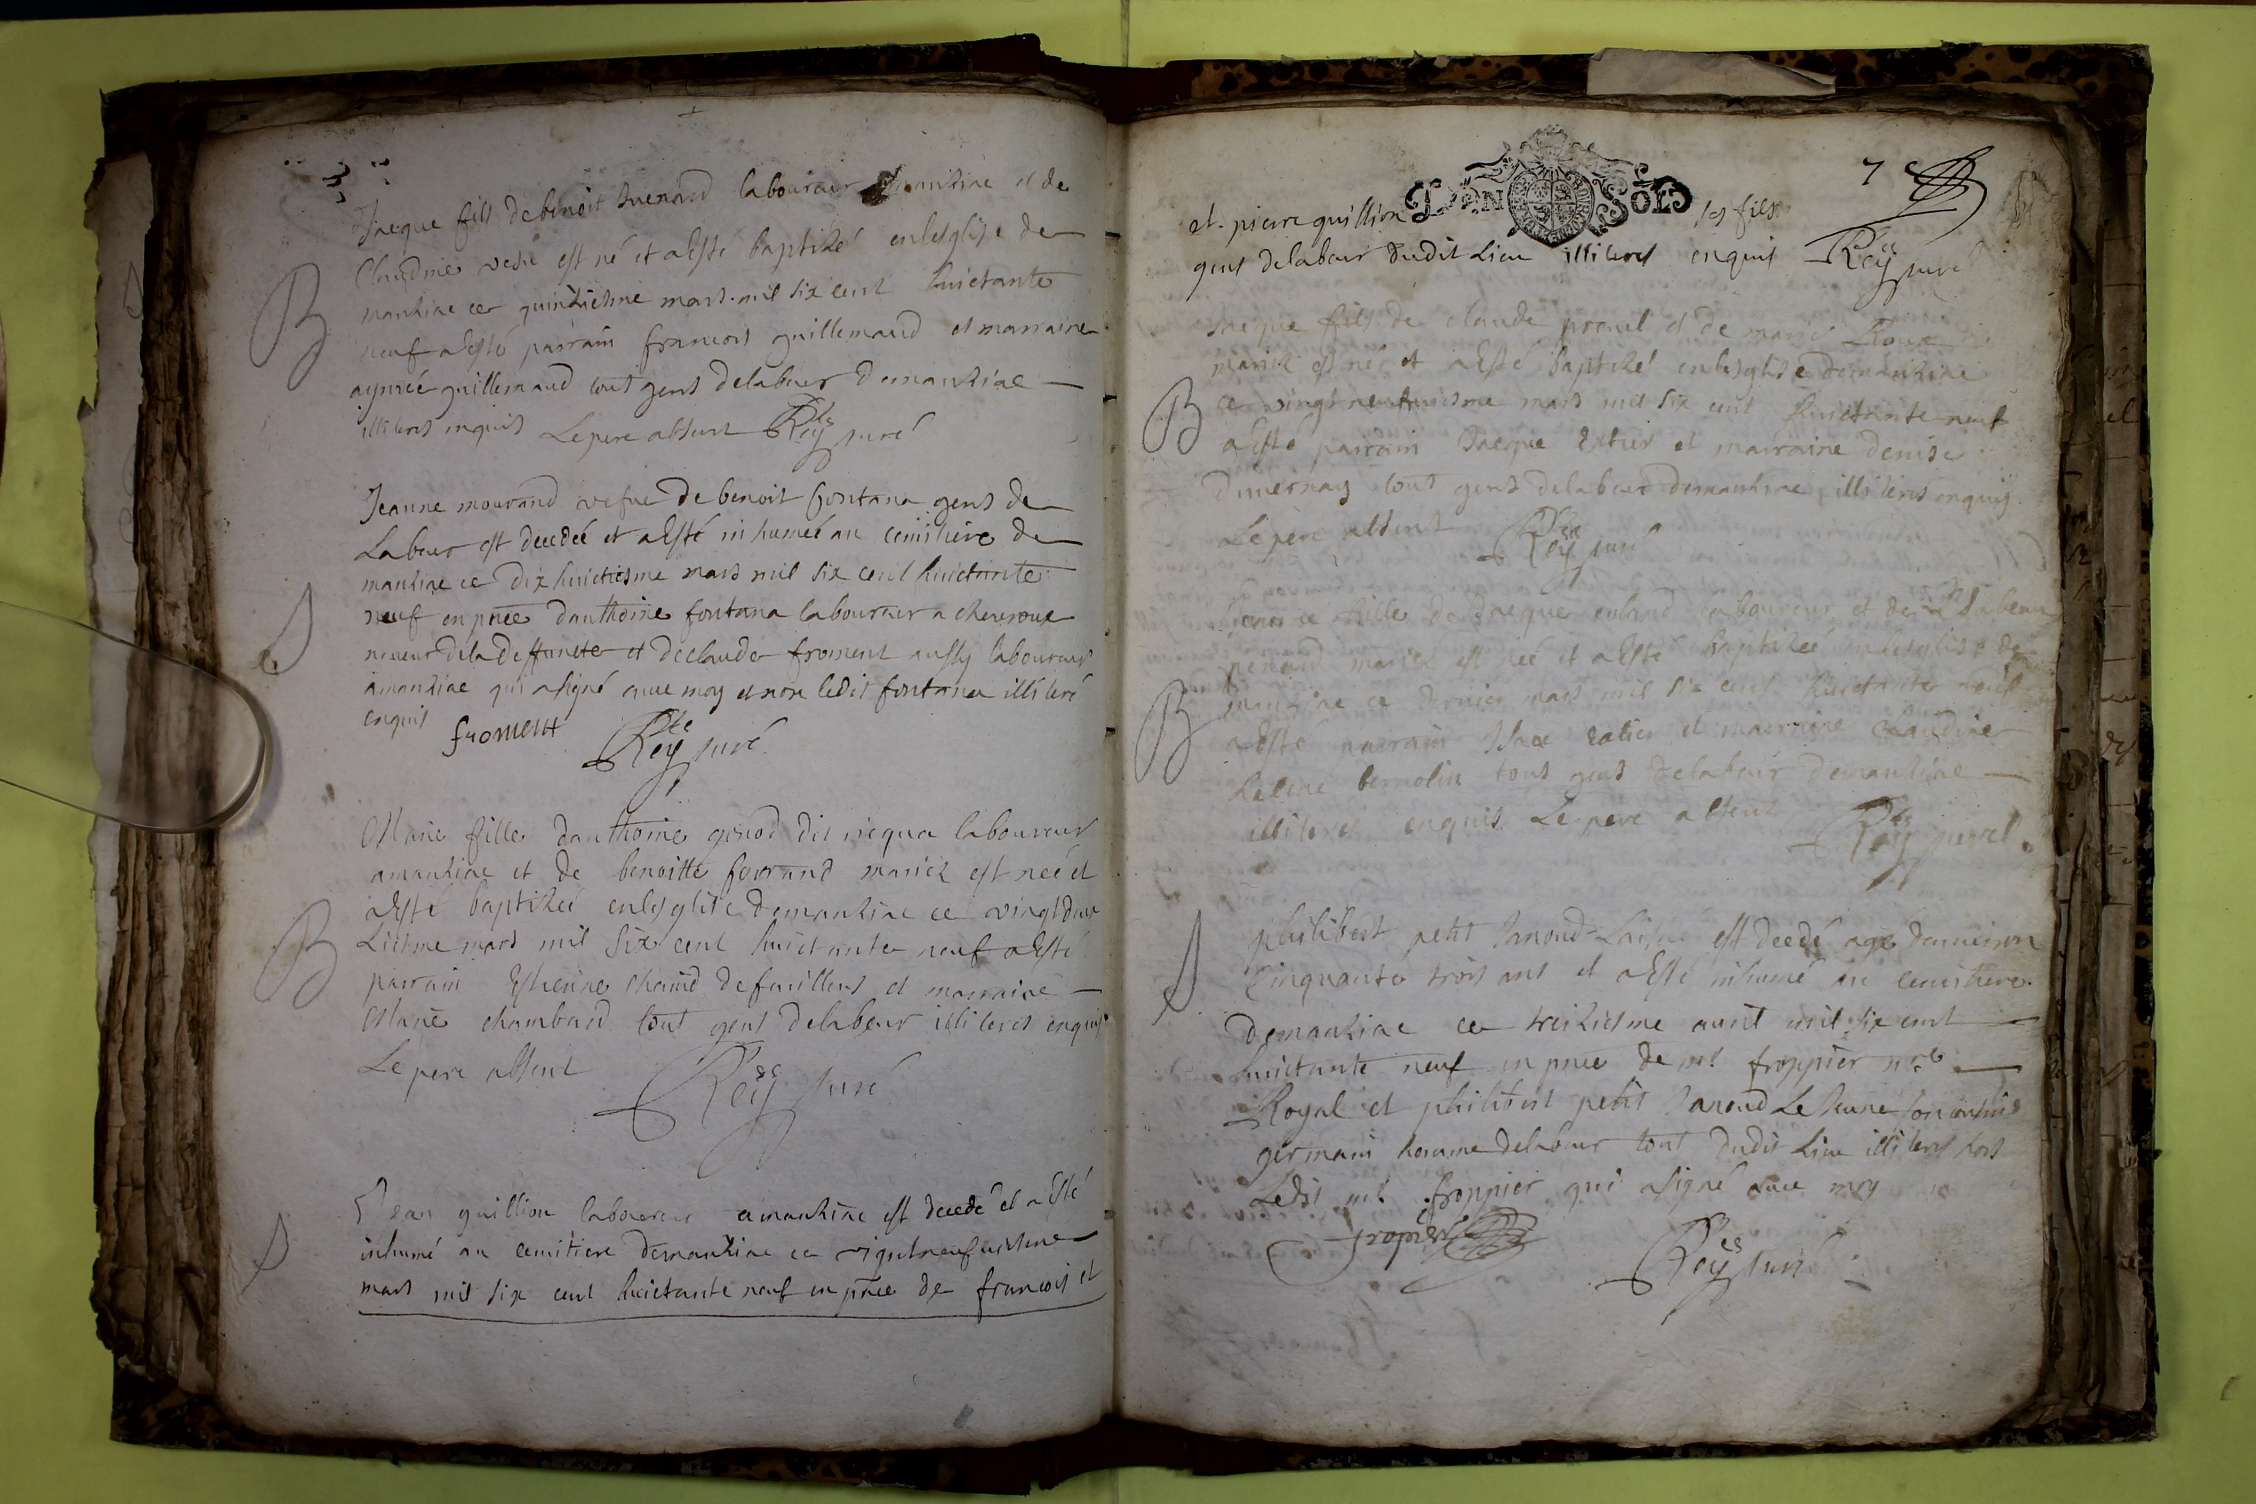 Jacque fils de benoit laboureur amanziac et de
Claudine est né et aesté baptizé enlesglize de
manziac ce quinziesme mars mil six cent huictante
B
neuf aesté parrain francois guillemaud et marraine
aymée guillemaud tout gens delabeur demanziac
illiteres enquis Lepere absent Rey curé
Jeanne mourand vefue de benoit fontana gens de
Labeur est decedée et aesté inhumée au cemitiere de
manziac ce dix huictiesme mars mil six cent huictante
S
neuf en pnce danthoine fontana laboureur a cheuroux
neueur dela deffuncte et declaude froment aussy laboureur
amanziac qui asigné auec moy et non ledit fontana illiteré
enquis froment Rey curé
Marie fille danthoine genod dit laboureur
amanziac et de benoitte ferrand mariez est née et
aesté baptizée enlesglize demanziac ce vingt deux
B
ziesme mars mil six cent huictante neuf aesté
parrain Estienne de fuillens et marraine
Marie chambard tout gens delabeur illiteres enquis
Le pere absent Rey curé
Jean guillion laboureur amanziac est decedé et aesté
S
inhumé au cemitiere demanziac ce vigntneufuiesme
mars mil six cent huictante neuf en pnce de francois et
7
DEN SOL
et pierre guillion ses fils
gens delabeur dudit Lieu illiteres enquis Rey curé
Jacque fils de claude et de marie Roux
mariez est né et aesté baptizé enlesglize demanziac
B
ce vingt neufuiesme mars mil six cent huictante neuf
aesté parrain Jacque et marraine denise
duuernay tout gens delabeur demanziac illiteres enquis
Le pere absent Rey curé
fille de Jacque laboureur et de
mariez est née et aesté baptizée enlesglize de
B
manziac ce dernier mars mil six cent huictante neuf
aesté parrain et marraine claudine
tout gens delabeur demanziac
illiteres enquis Le pere absent Rey curé
philibert petit Janond Laisné est decedé agé denuiron
S
Cinquante trois ans et aesté inhumé au cemitiere
demanziac ce treiziesme auril mil six cent
huictante neuf en pnce de mt froppier nre
Royal et philibert petit Janond Le Jeune son cousin
germain homme delabeur tout dudit Lieu illiteres hors
Ledit mt froppier qui asigné auec moy
fropier Rey curé